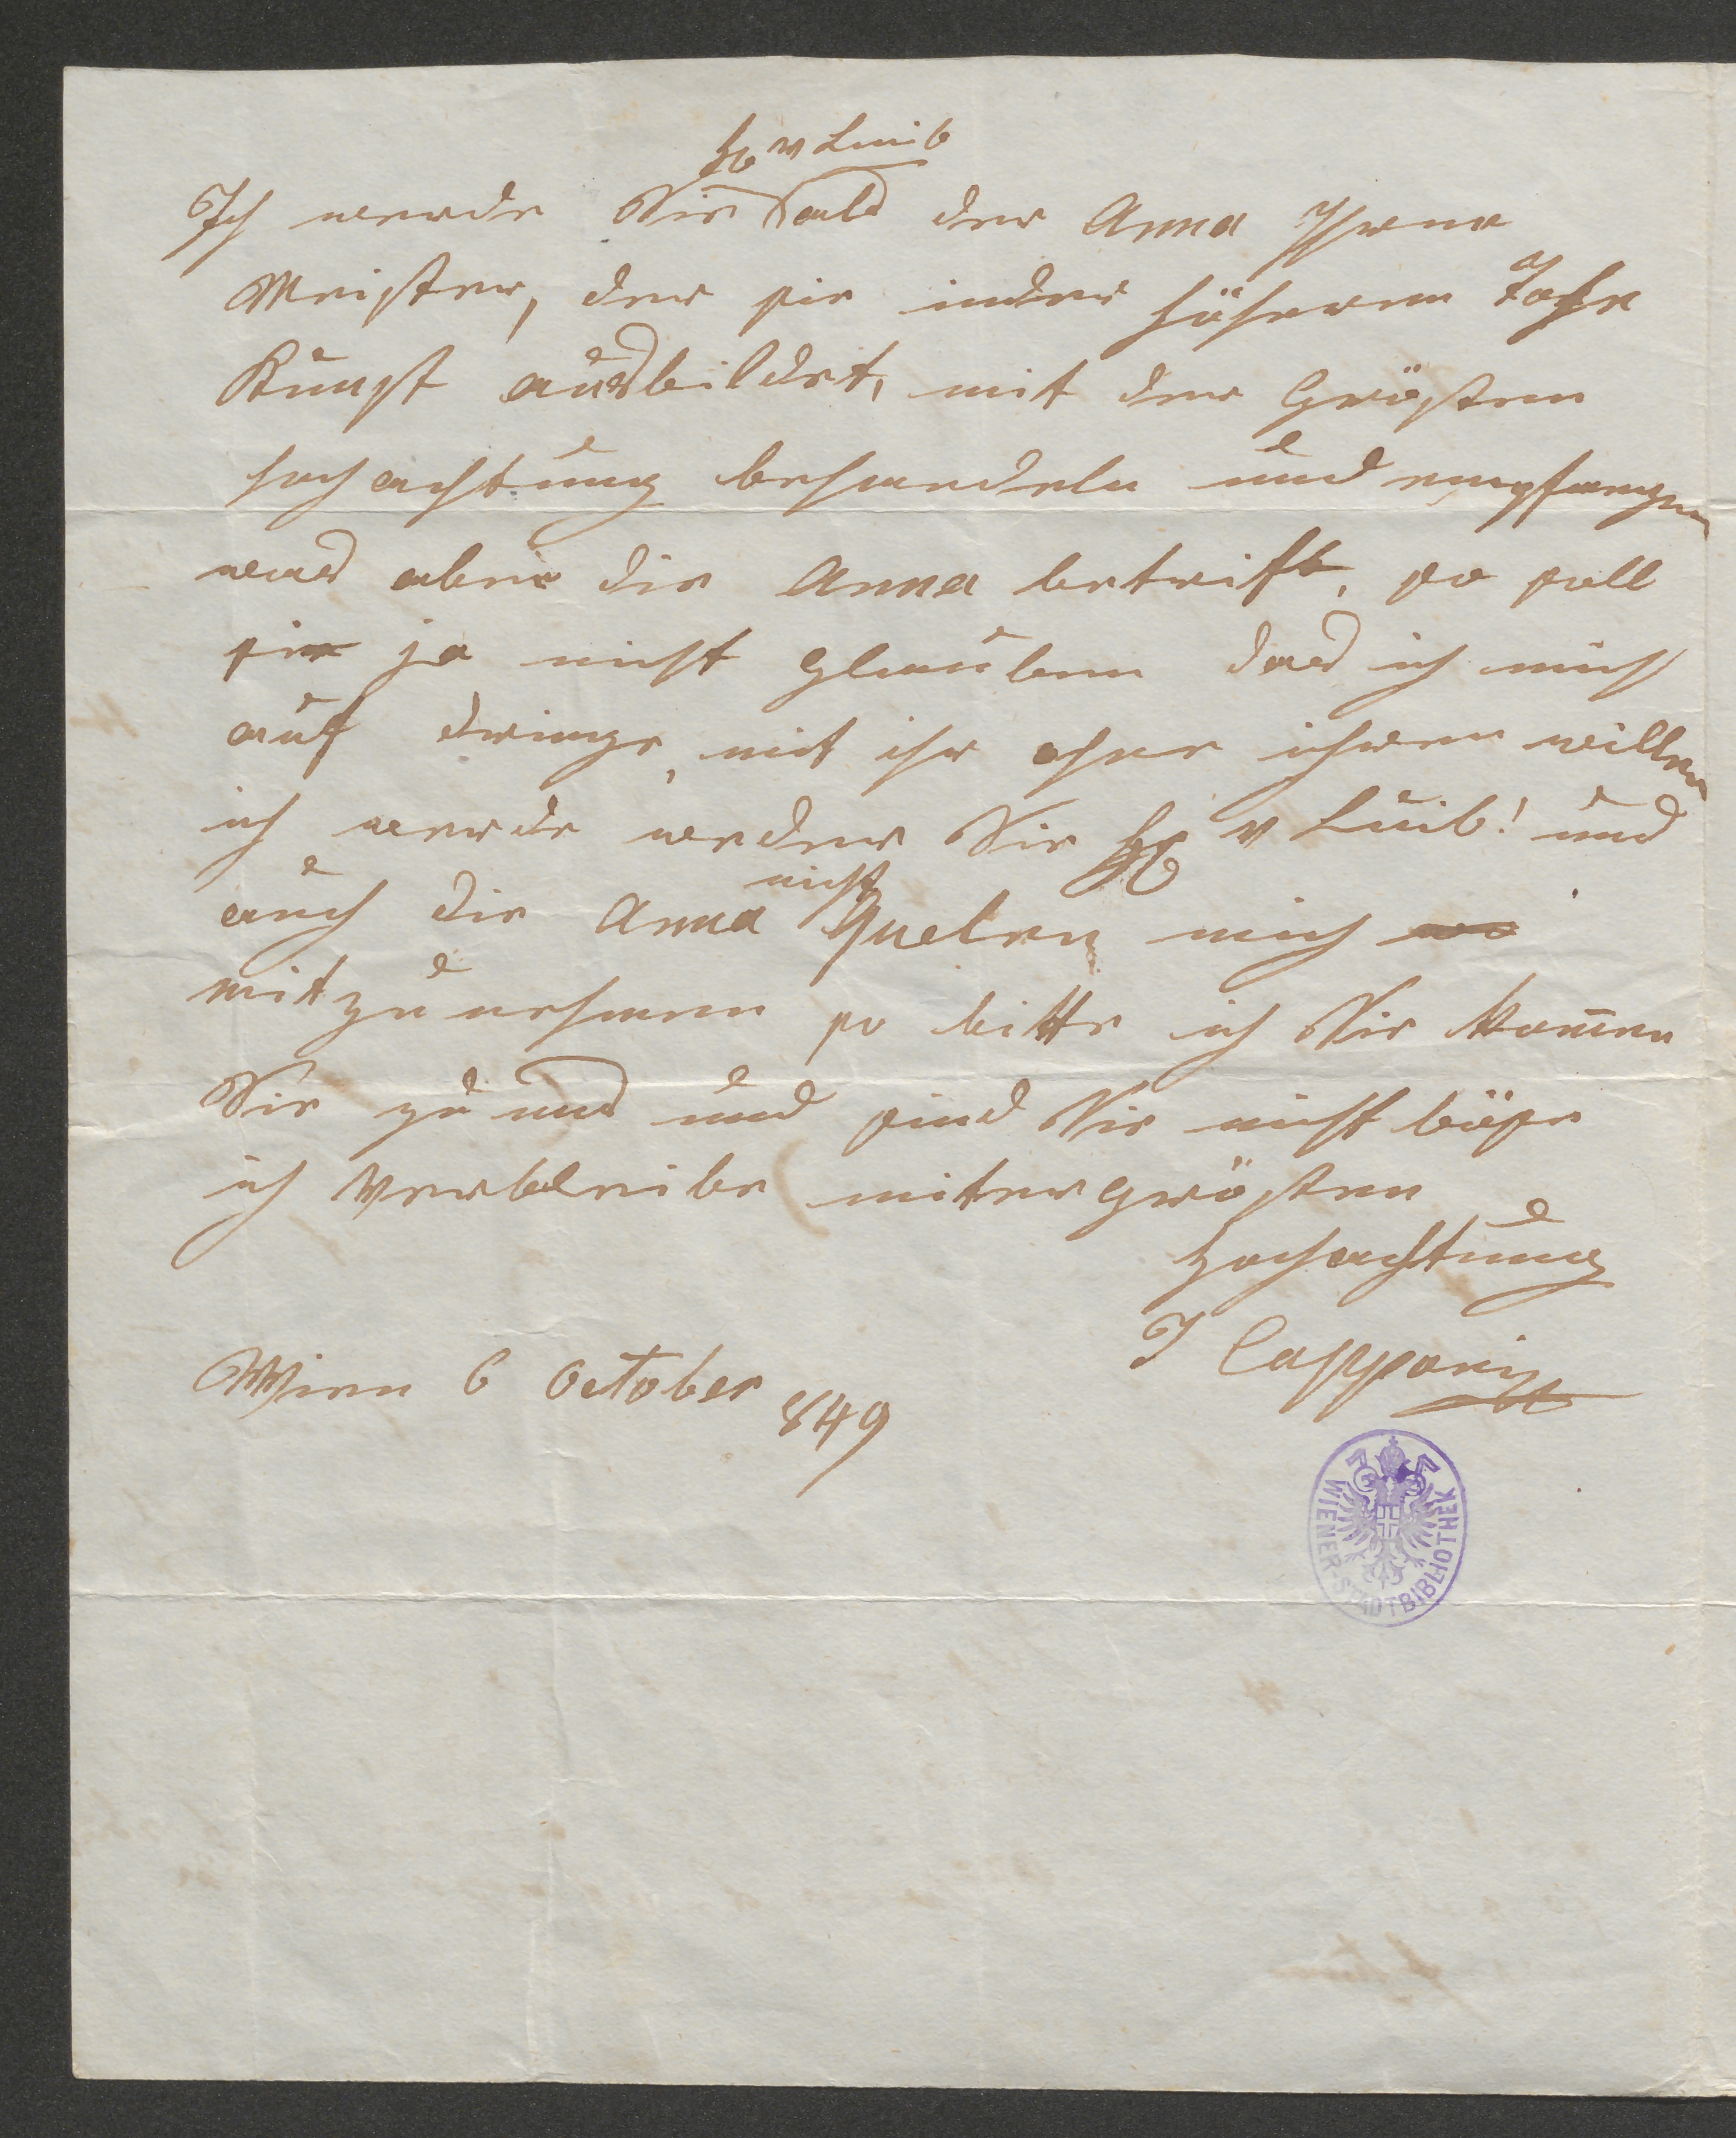 H v Luib
Ich werde Sie als der Anna Ihren
Meister, der sie in der höheren
Kunst ausbildet, mit der Grösten
hochachtung behandeln und empfangen
was aber die Anna betrift, so soll
sie ja nicht glauben das ich mich
auf dringe, mit ihr ohne ihren willen
ich werde weder Sie H v Luib! und
nicht
auch die Anna Quelen mich
mitzunehmen so bitte ich Sie komen
Sie zu uns und sind Sie nicht böse
ich verbleibe mit der grösten
Hochachtung
J Cappari
Wien 6 October 849
WIENER-STADTBIBLIOTHEK